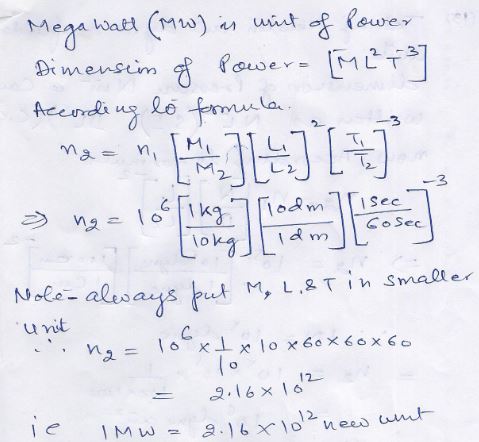 Mega Watt (MW) is unit of Power
Dimension of Power = [M L² T⁻³]
According to formula.
n₂ = n₁ [M₁/M₂] [L₁/L₂]² [T₁/T₂]⁻³
⇒ n₂ = 10⁶ [1kg/10kg] [10dm/1dm] [1sec/60sec]⁻³
Note - always put M, L, & T in smaller
unit
∴ n₂ = 10⁶ × 1/10 × 10 × 60 × 60 × 60
= 2.16 × 10¹²
ie 1MW = 2.16 × 10¹² new unit